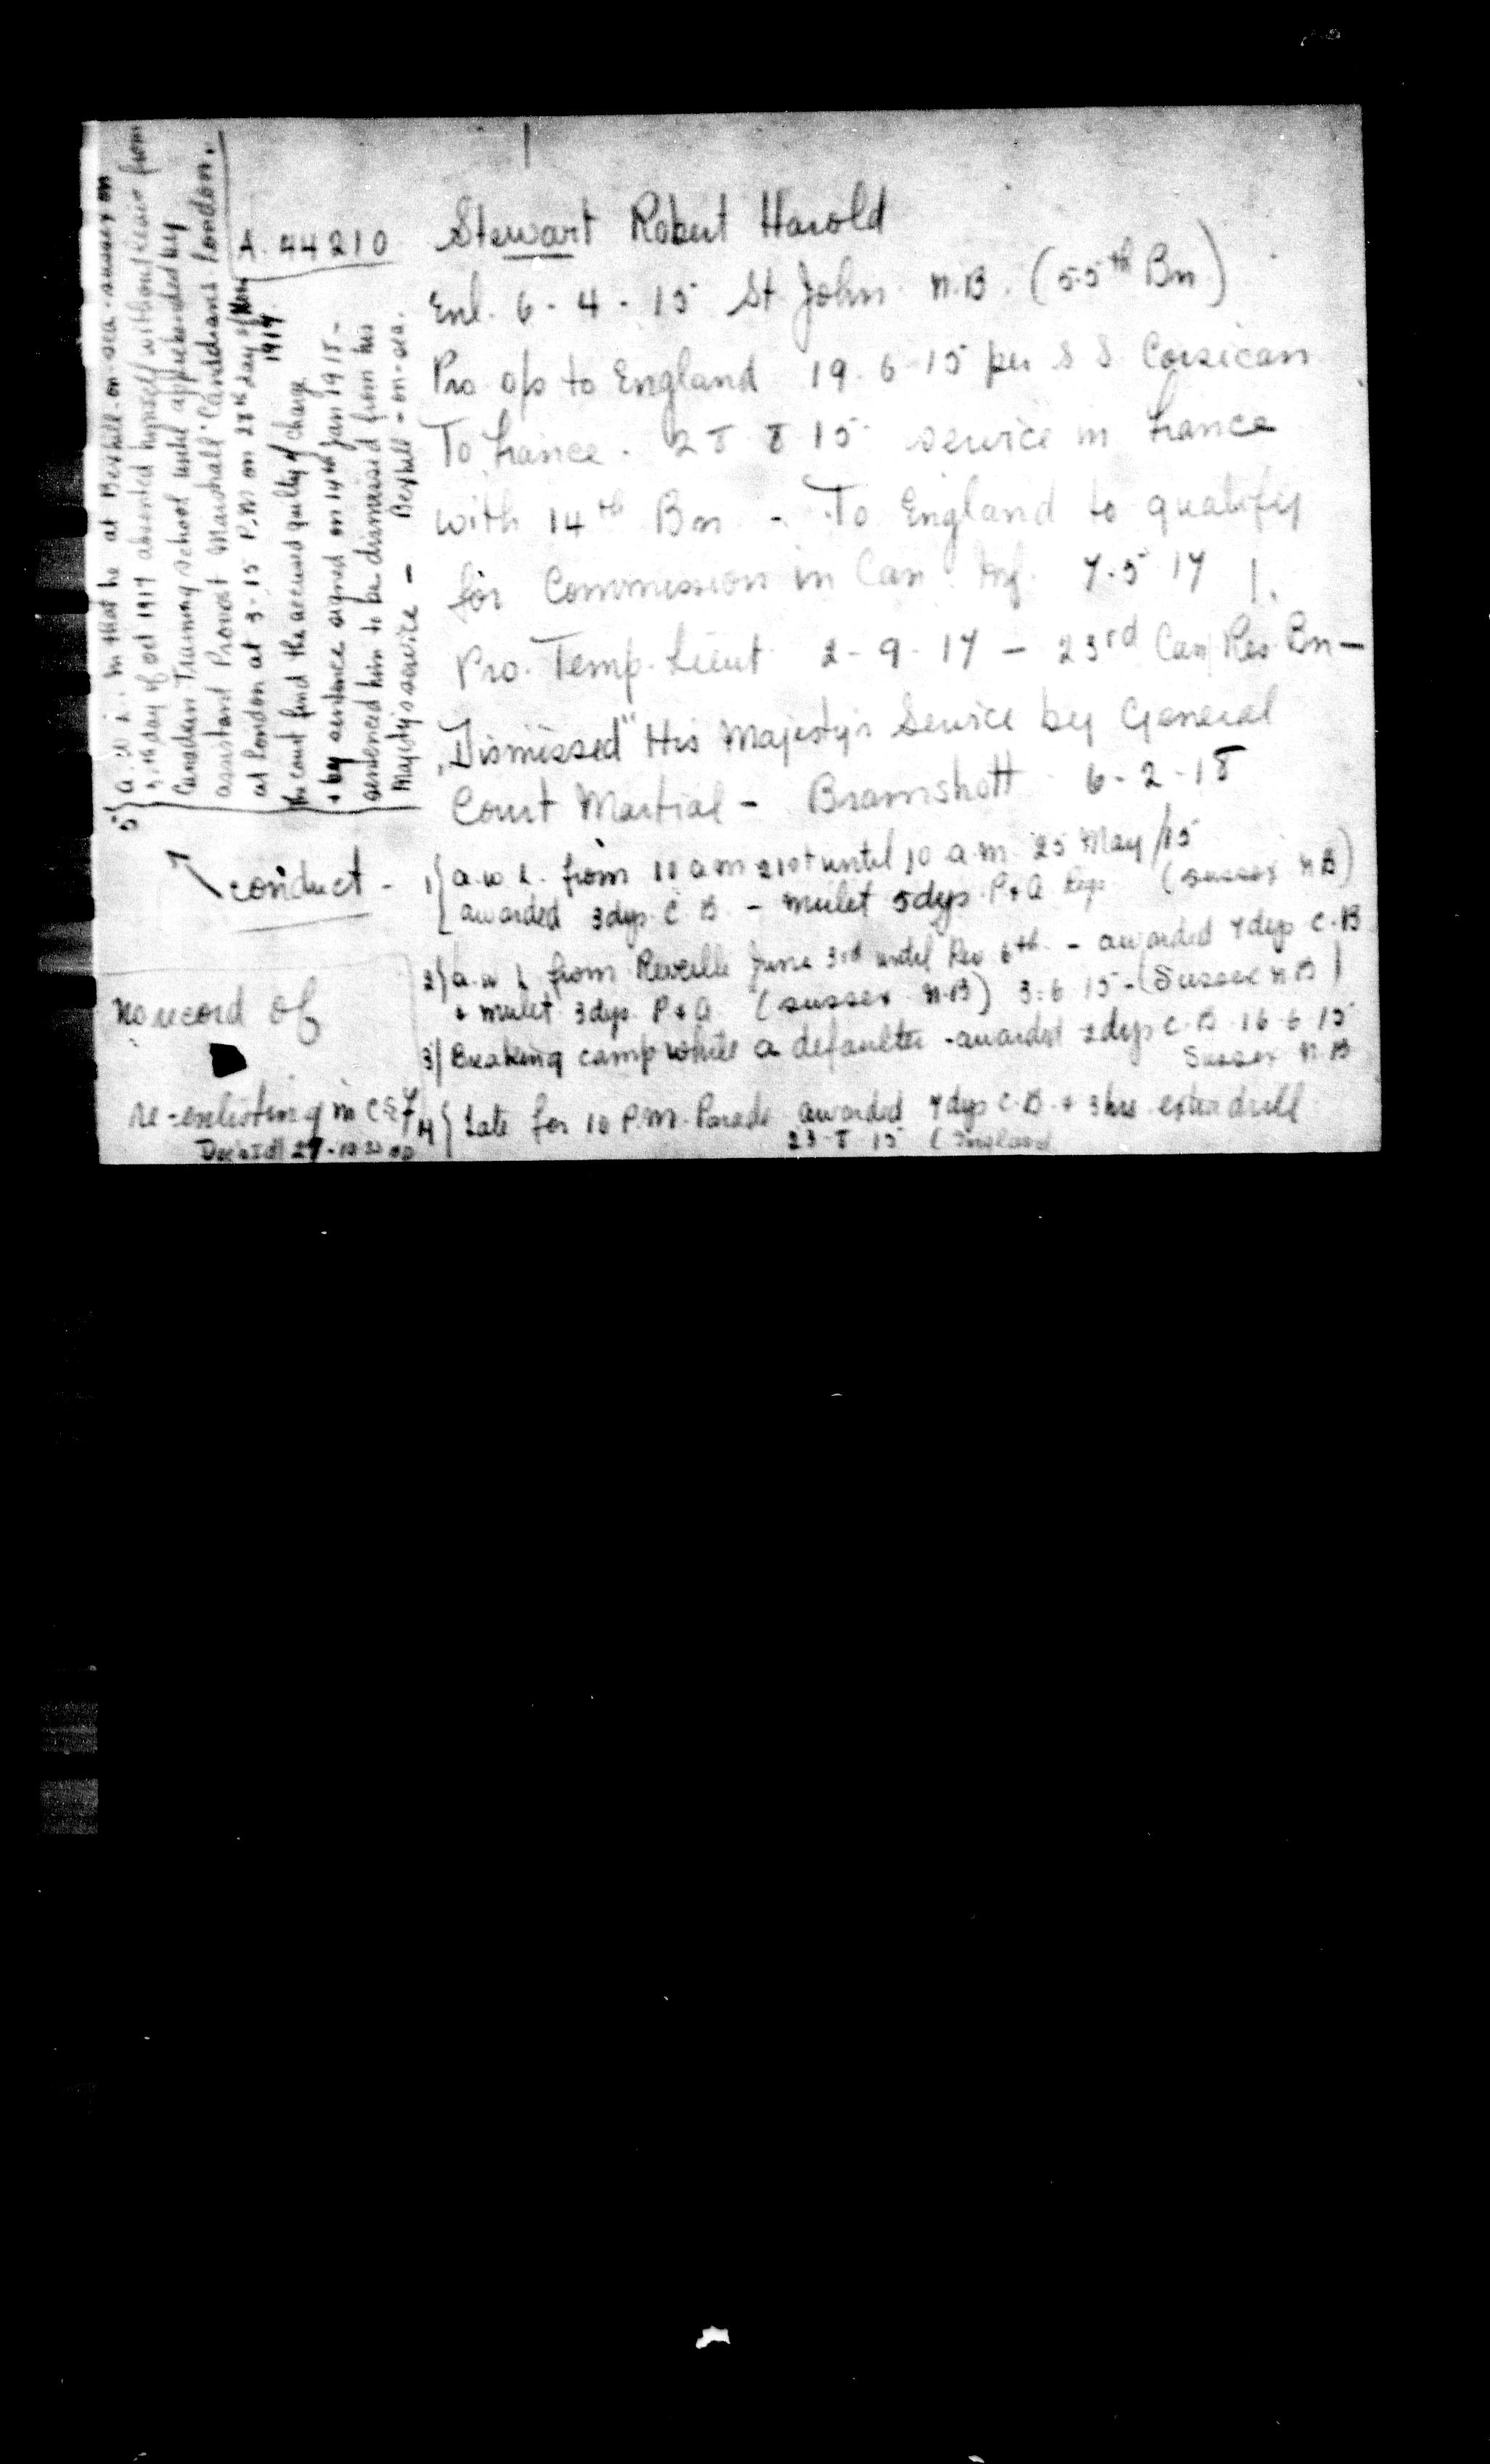 A. 44210
Stewart Robert Harold
Enl. 6-4-15 St John N.B. (55th Bn)
Pro. o/s to England 19.6.15 per S S Corsican
To France. 28 8 15 service in France
with 14th Bn - To England to qualify
for Commission in Can. Inf. 7.5 17
Pro. Temp. Lieut 2-9-17 - 23rd Can Res. Bn -
"Dismissed" His Majesty's Service by General
Court Martial - Bramshott 6-2-18
conduct -
1) a.w.l. from 10 am 21st until 10 a.m. 25 May/15
awarded 3 dys. C B. - mulct 5 dys P & A (Sussex N B)
2) a.w.l from Reveille June 3rd until Rev 6th - awarded 7 dys C.B
& mulct 3 dys. P & A (Sussex N.B) 3.6 15 - (Sussex N B)
3) Breaking camp while a defaulter - awarded 2 dys C.B. 16-6-15
Sussex N.B
4) Late for 10 P.M. Parade awarded 7 dys C.B. & 3 hrs extra drill
23-8-15 (England
5) a.w.l. in that he at Bexhill-on-sea-sussex on
day of Oct 1917 absented himself without leave from
Canadian Training School until apprehended by
assistant Provost Marshall Canadians London.
at London at 3-15 P.M on 28th day of Nov
1917.
The court find the accused guilty of charge
& by sentence signed on 14th Jan 1918 -
sentenced him to be dismissed from his
Majesty's service - Bexhill-on-sea.
no record of
re-enlisting in C E F